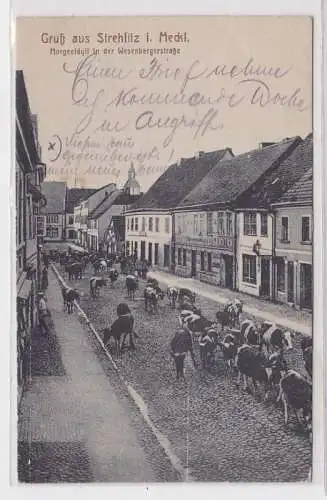 Gruß aus Strehlitz i. Meckl.
Morgenidyll in der Wesenbergerstraße
Einen Brief nehme
ich kommende Woche
in Angriff